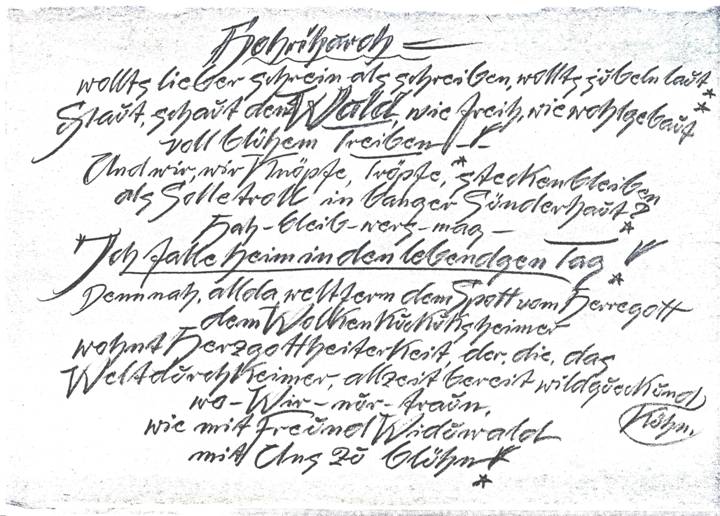 wollts lieber schrein als schreiben, wollts jubeln laut*
Staut, schaut den Wald, wie freih, wie wohlgebaut*
voll blühem Treiben -!-
Und wir, wir Knöpfe, Tröpfe,* steckenbleiben
als Solletroll in banger Sünderhaut?*
Hah-bleib-wers-mag-
Ich falle heim in den lebendgen Tag!*
Denn nah, allda, weltfern dem Spott vom Herregott
dem Wolkenkuckuksheimer
wohnt Herzgottheiterkeit, der, die, das
Weltdurchkeimer, allzeit bereit wildqueck und
wo-Wir-nur-traun, Kühn.
wie mit Freund Widuwald
mit Uns zu blühn!*